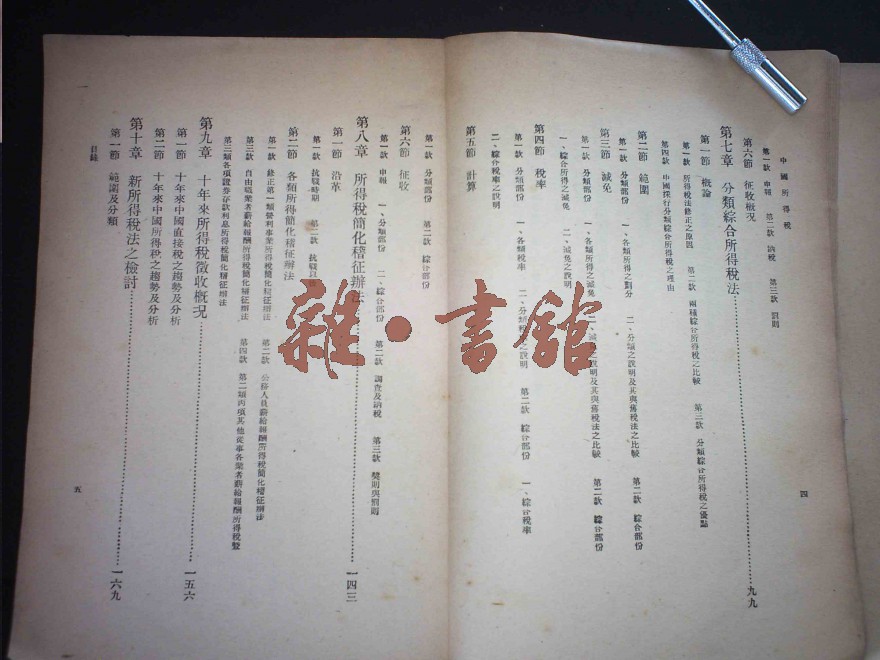 中國所得稅
第一款 申報 第二款 納稅 第三款 罰則
第六節 征收概況
第七章 分類綜合所得稅法……九九
第一節 概論
第一款 所得稅法修正之原因 第二款 兩種綜合所得稅之比較 第三款 分類綜合所得稅之優點
第四款 中國採行分類綜合所得稅之理由
第二節 範圍
第一款 分類部份 一、各類所得之劃分 二、分類之說明及其與舊稅法之比較 第二款 綜合部份
第三節 減免
第一款 分類部份 一、各類所得之減免 二、減免之說明及其與舊稅法之比較 第二款 綜合部份
一、綜合所得之減免 二、減免之說明
第四節 稅率
第一款 分類部份 一、各類稅率 二、分類稅率之說明 第二款 綜合部份 一、綜合稅率
二、綜合稅率之說明
第五節 計算
四
第一款 分類部份 第二款 綜合部份
第六節 征收
第一款 申報 一、分類部份 二、綜合部份 第二款 調查及納稅 第三款 獎則與罰則
第八章 所得稅簡化稽征辦法……一四三
第一節 沿革
第一款 抗戰時期 第二款 抗戰
第二節 各類所得簡化稽征辦法
第一款 修正第一類營利事業所得稅簡化稽征辦法 第二款 公務人員薪給報酬所得稅簡化稽征辦法
第三款 自由職業者薪給報酬所得稅簡化稽征辦法 第四款 第二類丙項其他從事各業者薪給報酬所得稅暨
第三類各項證券存款利息所得稅簡化稽征辦法
第九章 十年來所得稅徵收概況……一五六
第一節 十年來中國直接稅之趨勢及分析
第二節 十年來中國所得稅之趨勢及分析
第十章 新所得稅法之檢討……一六九
第一節 範圍及分類
目錄
五
一
雜·書館